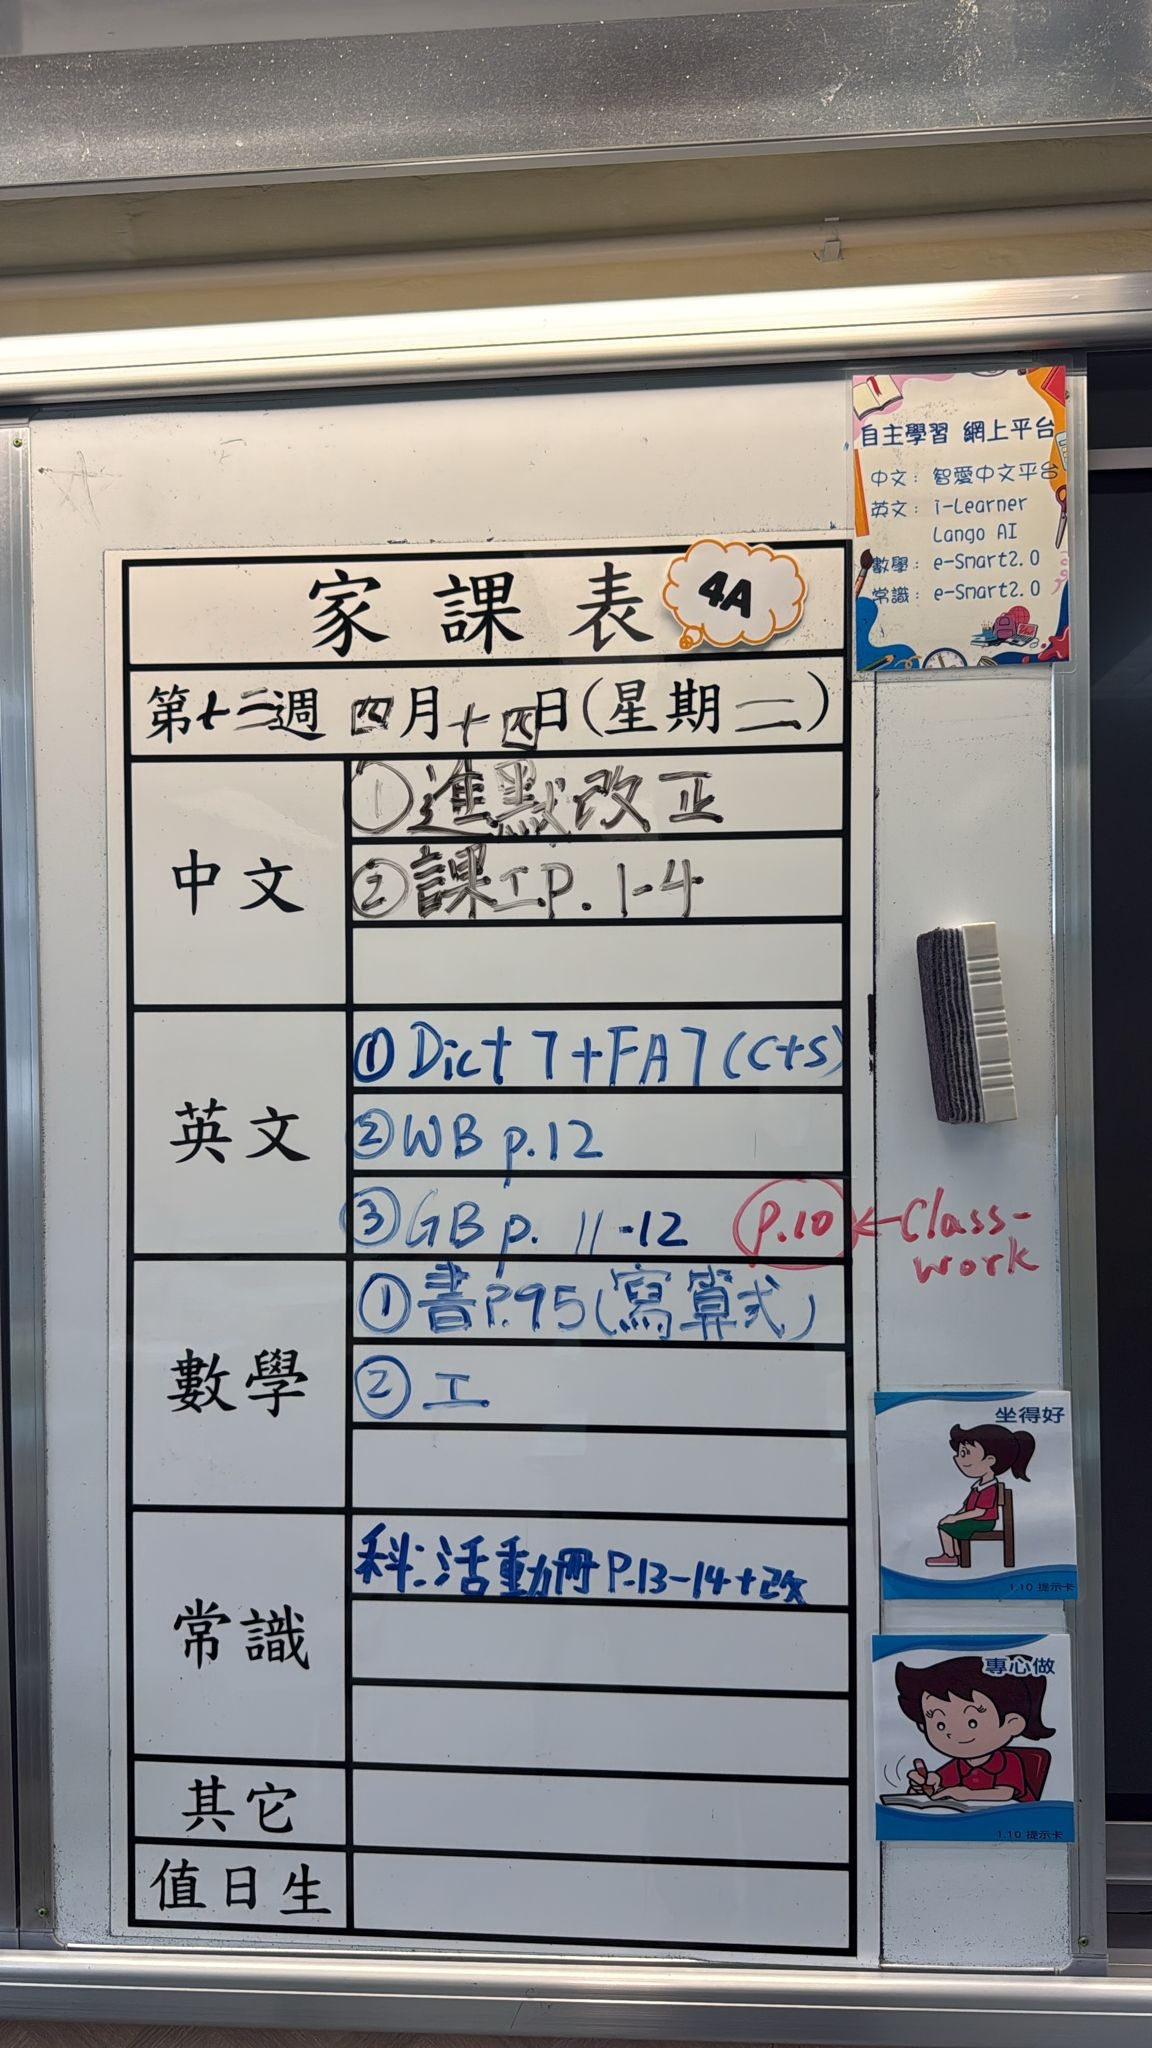 自主學習 網上平台
中文： 智愛中文平台
英文： i-Learner
Lango AI
數學： e-Smart2.0
常識： e-Smart2.0
家課表 4A
第十二週 四月十四日(星期二)
中文
①進默改正
②課工P. 1-4
英文
①Dict 7+FA7 (C+S)
②WB p.12
③GB p. 11-12 P.10 ←Class-
work
數學
①書P.95(寫算式)
②工
常識
科:活動冊P.13-14+改
其它
值日生
坐得好
1.10 提示卡
專心做
1.10 提示卡